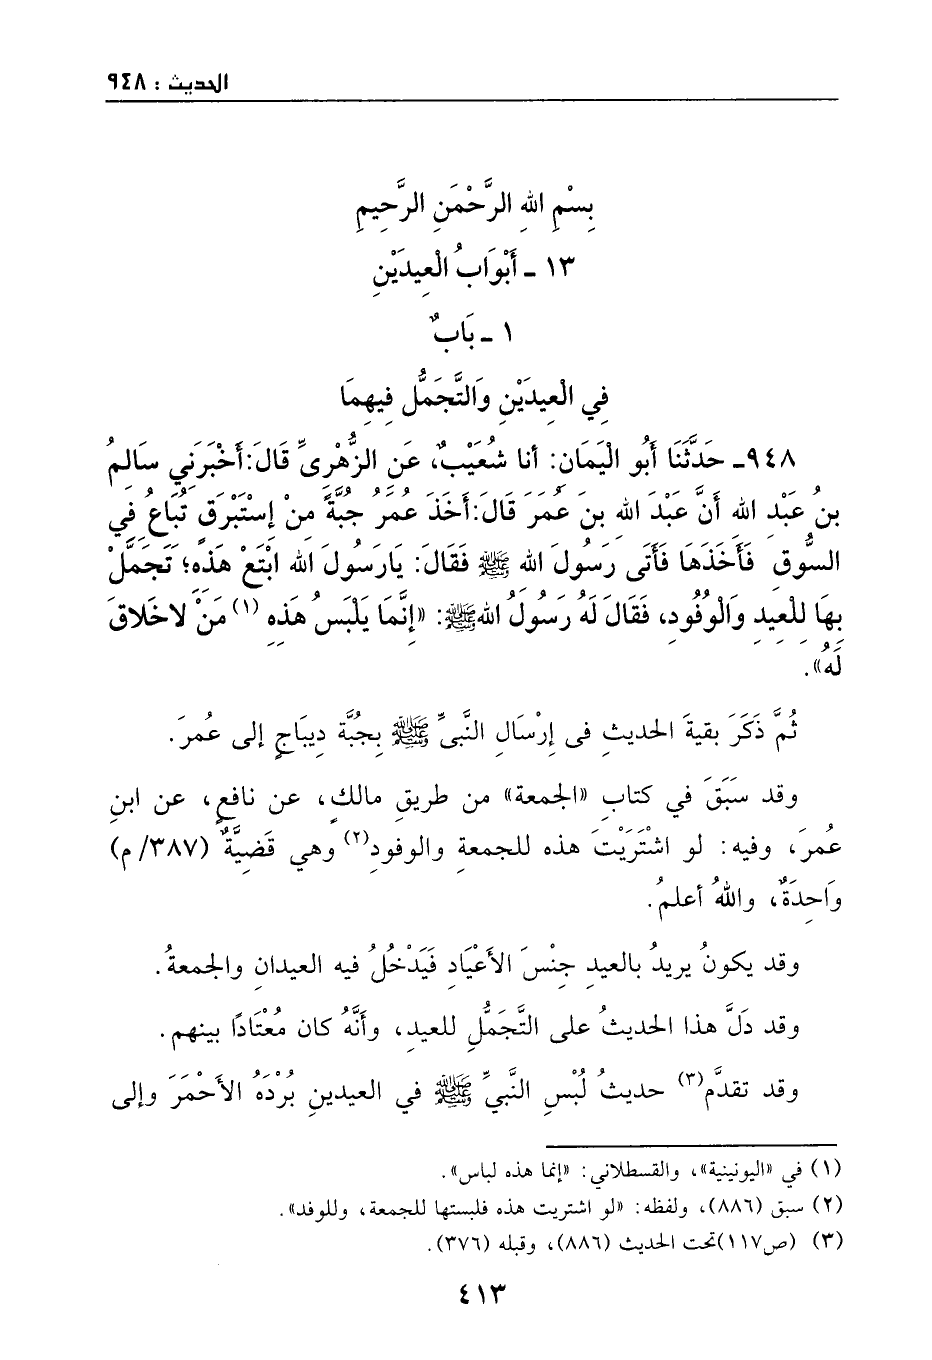 الحديث : ٩٤٨
بِسْمِ اللهِ الرَّحْمَنِ الرَّحِيمِ
١٣ - أَبْوَابُ الْعِيدَيْنِ
١ - بَابٌ
فِي الْعِيدَيْنِ وَالتَّجَمُّلِ فِيهِمَا
٩٤٨- حَدَّثَنَا أَبُو الْيَمَانِ: أنا شُعَيْبٌ، عَنِ الزُّهْرِىِّ قَالَ:أَخْبَرَنِي سَالِمُ
بنُ عَبْدِ اللهِ أَنَّ عَبْدَ اللهِ بنَ عُمَرَ قَالَ:أَخَذَ عُمَرُ جُبَّةً مِنْ إِسْتَبْرَقٍ تُبَاعُ فِي
السُّوقِ فَأَخَذَهَا فَأَتَى رَسُولَ اللهِ ﷺ فَقَالَ: يَارَسُولَ اللهِ ابْتَعْ هَذِهِ؛ تَجَمَّلْ
بِهَا لِلْعِيدِ وَالْوُفُودِ، فَقَالَ لَهُ رَسُولُ اللهِ ﷺ: «إِنَّمَا يَلْبَسُ هَذِهِ (١) مَنْ لاخَلاقَ
لَهُ».
ثُمَّ ذَكَرَ بقيةَ الحديثِ فى إِرْسَالِ النَّبىِّ ﷺ بِجُبَّة دِيبَاجٍ إلى عُمرَ.
وقد سَبَقَ في كتابِ «الجمعة» من طريقِ مالكٍ، عن نافعٍ، عن ابنِ
عُمرَ، وفيه: لو اشْتَرَيْتَ هذه للجمعةِ والوفودِ(٢) وهي قَضِيَّةٌ (٣٨٧/ م)
وَاحِدَةٌ، واللهُ أعلمُ.
وقد يكونُ يريدُ بالعيدِ جِنْسَ الأَعْيَادِ فَيَدْخُلُ فيه العيدانِ والجمعةُ.
وقد دَلَّ هذا الحديثُ على التَّجَمُّلِ للعيدِ، وأَنَّهُ كان مُعْتَادًا بينهم.
وقد تقدَّم(٣) حديثُ لُبْسِ النَّبيِّ ﷺ في العيدينِ بُرْدَهُ الأَحْمَرَ وإلى
(١) في «اليونينية»، والقسطلاني: «إنما هذه لباس».
(٢) سبق (٨٨٦)، ولفظه: «لو اشتريت هذه فلبستها للجمعة، وللوفد».
(٣) (ص١١٧)تحت الحديث (٨٨٦)، وقبله (٣٧٦).
٤١٣